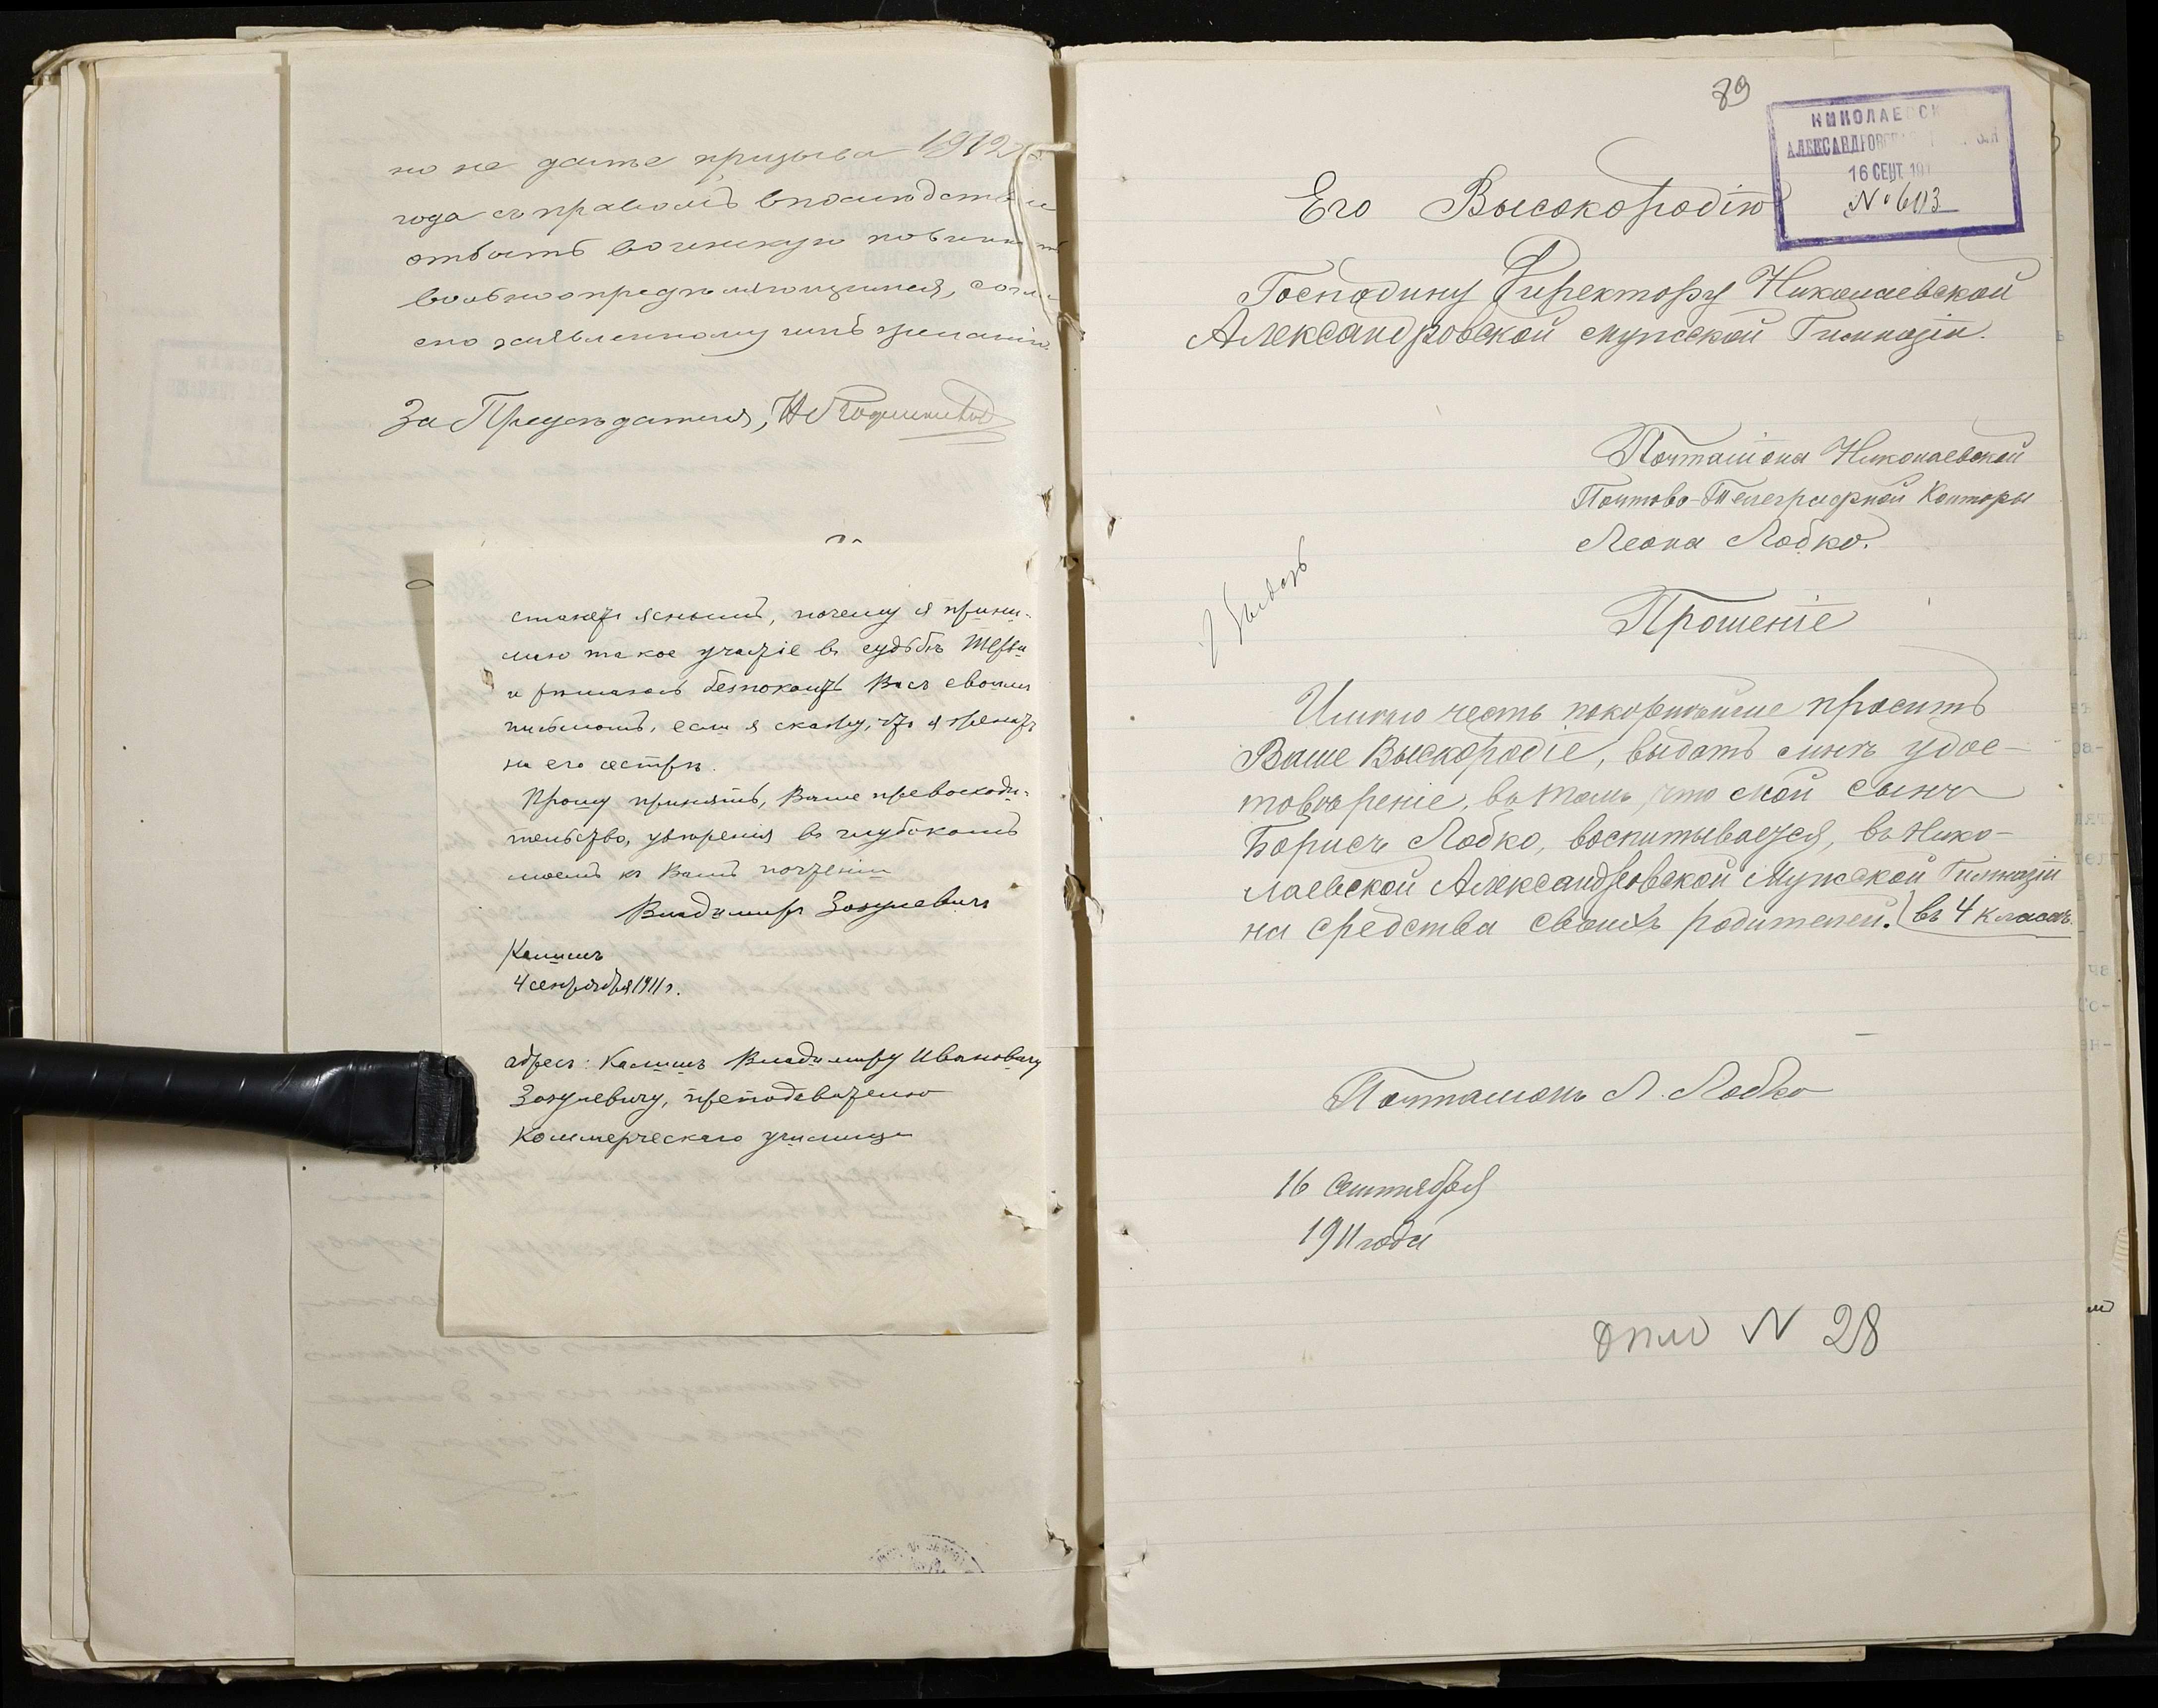 но не далѣе призыва 1912
года съ правомъ впослѣдствіи
отбыть воинскую повинность
вольноопредѣляющимся, согла-
сно заявленному имъ желанію.
За Предсѣдателя,
станетъ яснымъ, почему я прини-
маю такое участіе въ судьбѣ
и рѣшаюсь безпокоить Васъ своимъ
письмомъ, если я скажу, что я женатъ
на его сестрѣ.
Прошу принять, Ваше превосходи-
тельство, увѣренія въ глубокомъ
моемъ къ Вамъ почтеніи
Владимиръ Зозулевичъ
Калишъ
4 сентября 1911 г.
адресъ: Калишъ Владимиру Ивановичу
Зозулевичу, преподавателю
Коммерческаго училища
89
НИКОЛАЕВСК
АЛЕКСАНДРОВС
16 СЕНТ. 191
№ 603
Его Высокородію
Господину Директору Николаевской
Александровской мужской Гимназіи.
Почталіона Николаевской
Почтово-Телеграфной Конторы
Леона Лобко.
Прошеніе
Имѣю честь покорнѣйше просить
Ваше Выскородіе, выдать мнѣ удос-
товѣреніе, въ томъ, что мой сынъ
Борисъ Лобко, воспитывается, въ Нико-
лаевской Александровской Мужской Гимназіи
на средства своихъ родителей. въ 4 классѣ.
Почталіонъ Л. Лобко
16 Сентября
1911 года
дѣло N 28